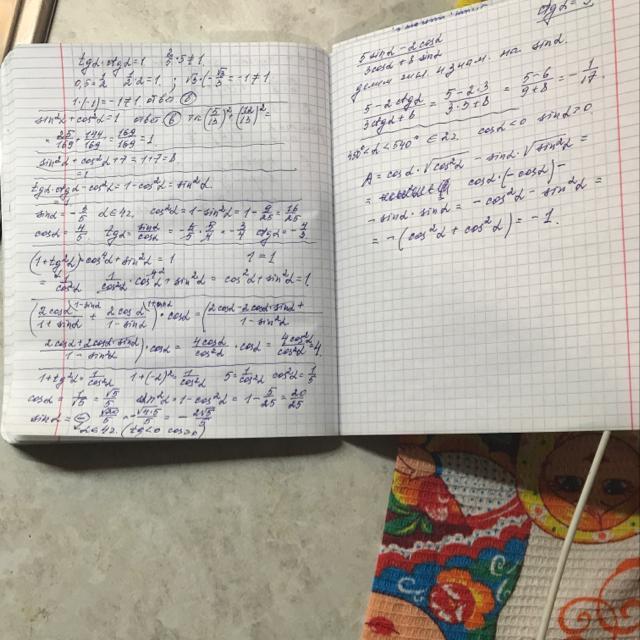 tgα·ctgα=1 2/5·5≠1
0,5=1/2 1/2·2=1 ; √3·(-√3/3)=-1≠1
1·(-1)=-1≠1 ответ б
sin²α+cos²α=1 ответ б тк (5/13)²+(12/13)²=
=25/169+144/169=169/169=1.
sin²α+cos²α+7=1+7=8
tgα·ctgα-cos²α=1-cos²α=sin²α
sinα=-3/5 α∈4ч. cos²α=1-sin²α=1-9/25=16/25
cosα=4/5 tgα=sinα/cosα=-3/5·5/4=-3/4 ctgα=-4/3
(1+tg²α)·cos²α+sin²α=1 1=1
=1/cos²α 1/cos²α·cos⁴α+sin²α=cos²α+sin²α=1
(2cosα/1+sinα + 2cosα/1-sinα)·cosα=(2cosα-2cosα·sinα+/1-sin²α
2cosα+2cosα·sinα/1-sin²α)·cosα=4cosα/cos²α·cosα=4cos²α/cos²α=4.
1+tg²α=1/cos²α 1+(-2)²=1/cos²α 5=1/cos²α cos²α=1/5
cosα=1/√5=√5/5 sin²α=1-cos²α=1-5/25=20/25
sinα=-√20/5=-√4·5/5=-2√5/5
α∈4ч. (tg<0 cos>0)
ctgα=3
5sinα-2cosα/3cosα+8sinα
делим чис и знам. на sinα.
5-2ctgα/3ctgα+8=5-2·3/3·3+8=5-6/9+8=-1/17.
450°<α<540° ∈2ч. cosα<0 sinα>0.
A=cosα·√cos²α-sinα·√sin²α=
= cosα·(-cosα)-
-sinα·sinα=-cos²α-sin²α=
=-(cos²α+cos²α)=-1.